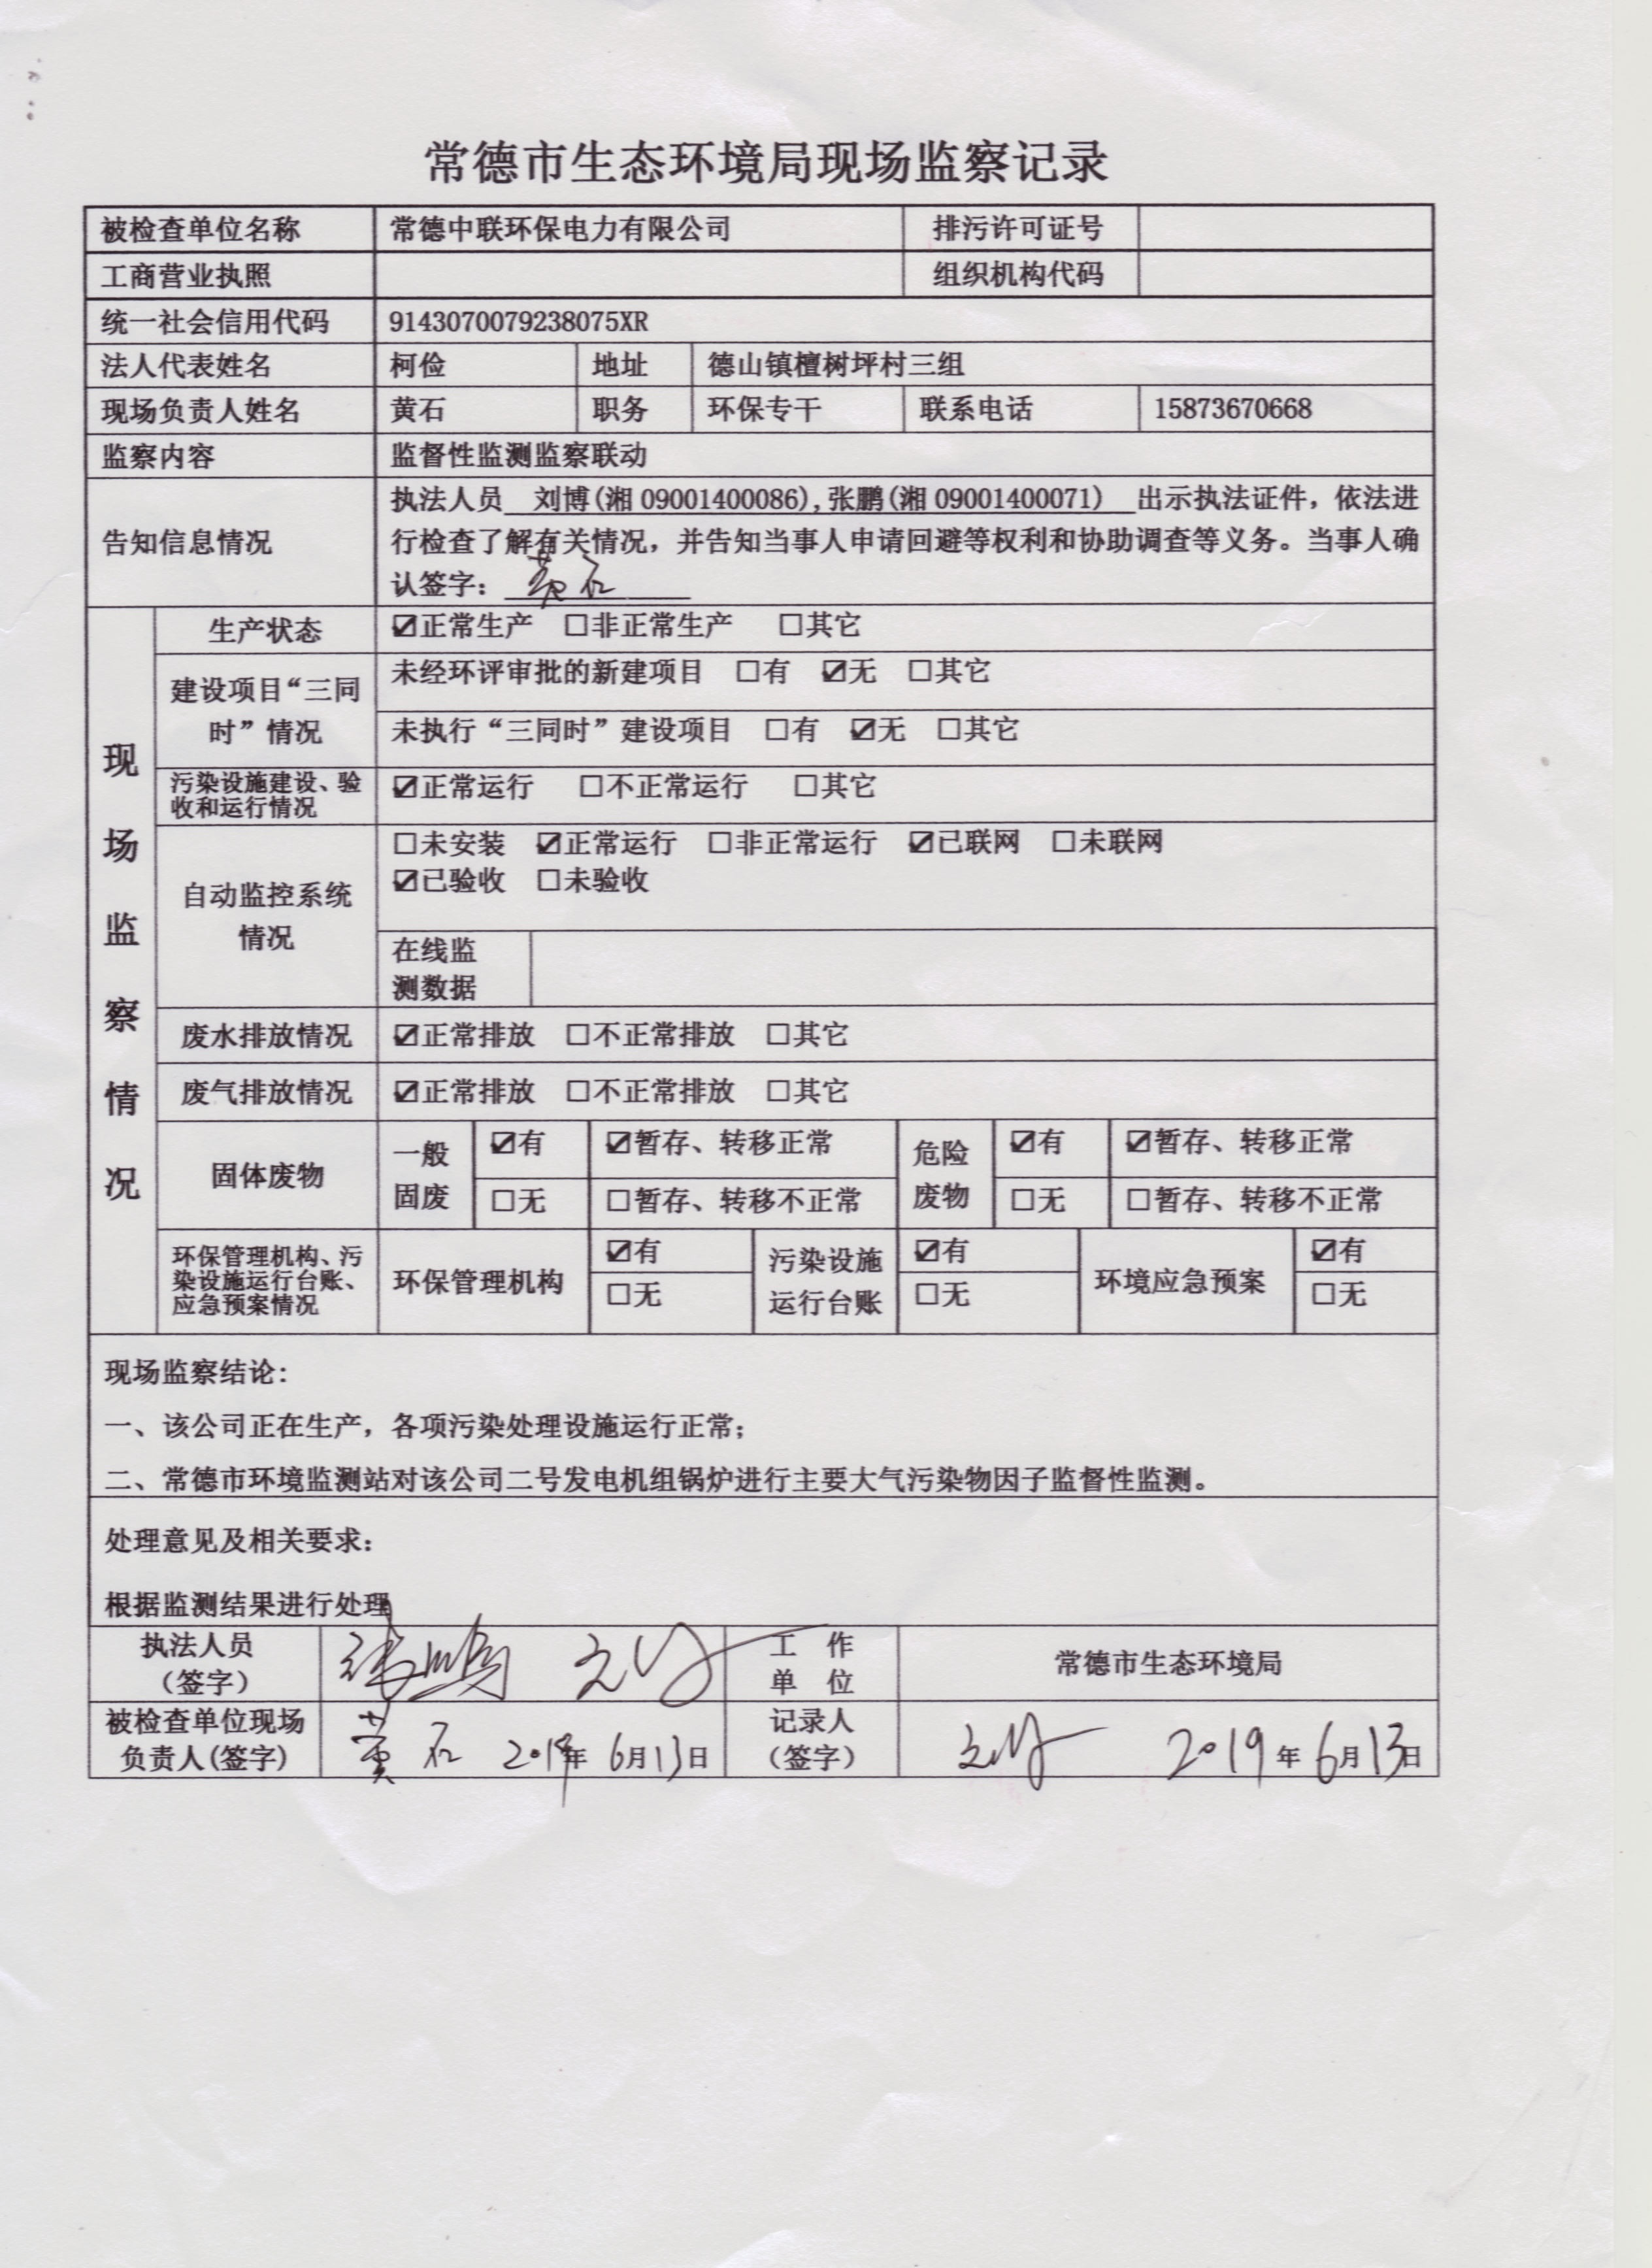 常德市生态环境局现场监察记录
被检查单位名称 常德中联环保电力有限公司 排污许可证号
工商营业执照 组织机构代码
统一社会信用代码 9143070079238075XR
法人代表姓名 柯俭 地址 德山镇檀树坪村三组
现场负责人姓名 黄石 职务 环保专干 联系电话 15873670668
监察内容 监督性监测监察联动
告知信息情况
执法人员 刘博(湘 09001400086),张鹏(湘 09001400071) 出示执法证件，依法进
行检查了解有关情况，并告知当事人申请回避等权利和协助调查等义务。当事人确
认签字： 黄石
现场监察情况
生产状态 ☑正常生产 □非正常生产 □其它
建设项目“三同
时”情况
未经环评审批的新建项目 □有 ☑无 □其它
未执行“三同时”建设项目 □有 ☑无 □其它
污染设施建设、验
收和运行情况
☑正常运行 □不正常运行 □其它
自动监控系统
情况
□未安装 ☑正常运行 □非正常运行 ☑已联网 □未联网
☑已验收 □未验收
在线监
测数据
废水排放情况 ☑正常排放 □不正常排放 □其它
废气排放情况 ☑正常排放 □不正常排放 □其它
固体废物
一般
固废
☑有 ☑暂存、转移正常
□无 □暂存、转移不正常
危险
废物
☑有 ☑暂存、转移正常
□无 □暂存、转移不正常
环保管理机构、污
染设施运行台账、
应急预案情况
环保管理机构
☑有
□无
污染设施
运行台账
☑有
□无
环境应急预案
☑有
□无
现场监察结论：
一、该公司正在生产，各项污染处理设施运行正常；
二、常德市环境监测站对该公司二号发电机组锅炉进行主要大气污染物因子监督性监测。
处理意见及相关要求：
根据监测结果进行处理
执法人员
（签字）
张鹏 刘博
工 作
单 位
常德市生态环境局
被检查单位现场
负责人(签字)
黄石 2019年 6月13日
记录人
（签字）
刘博 2019年6月13日